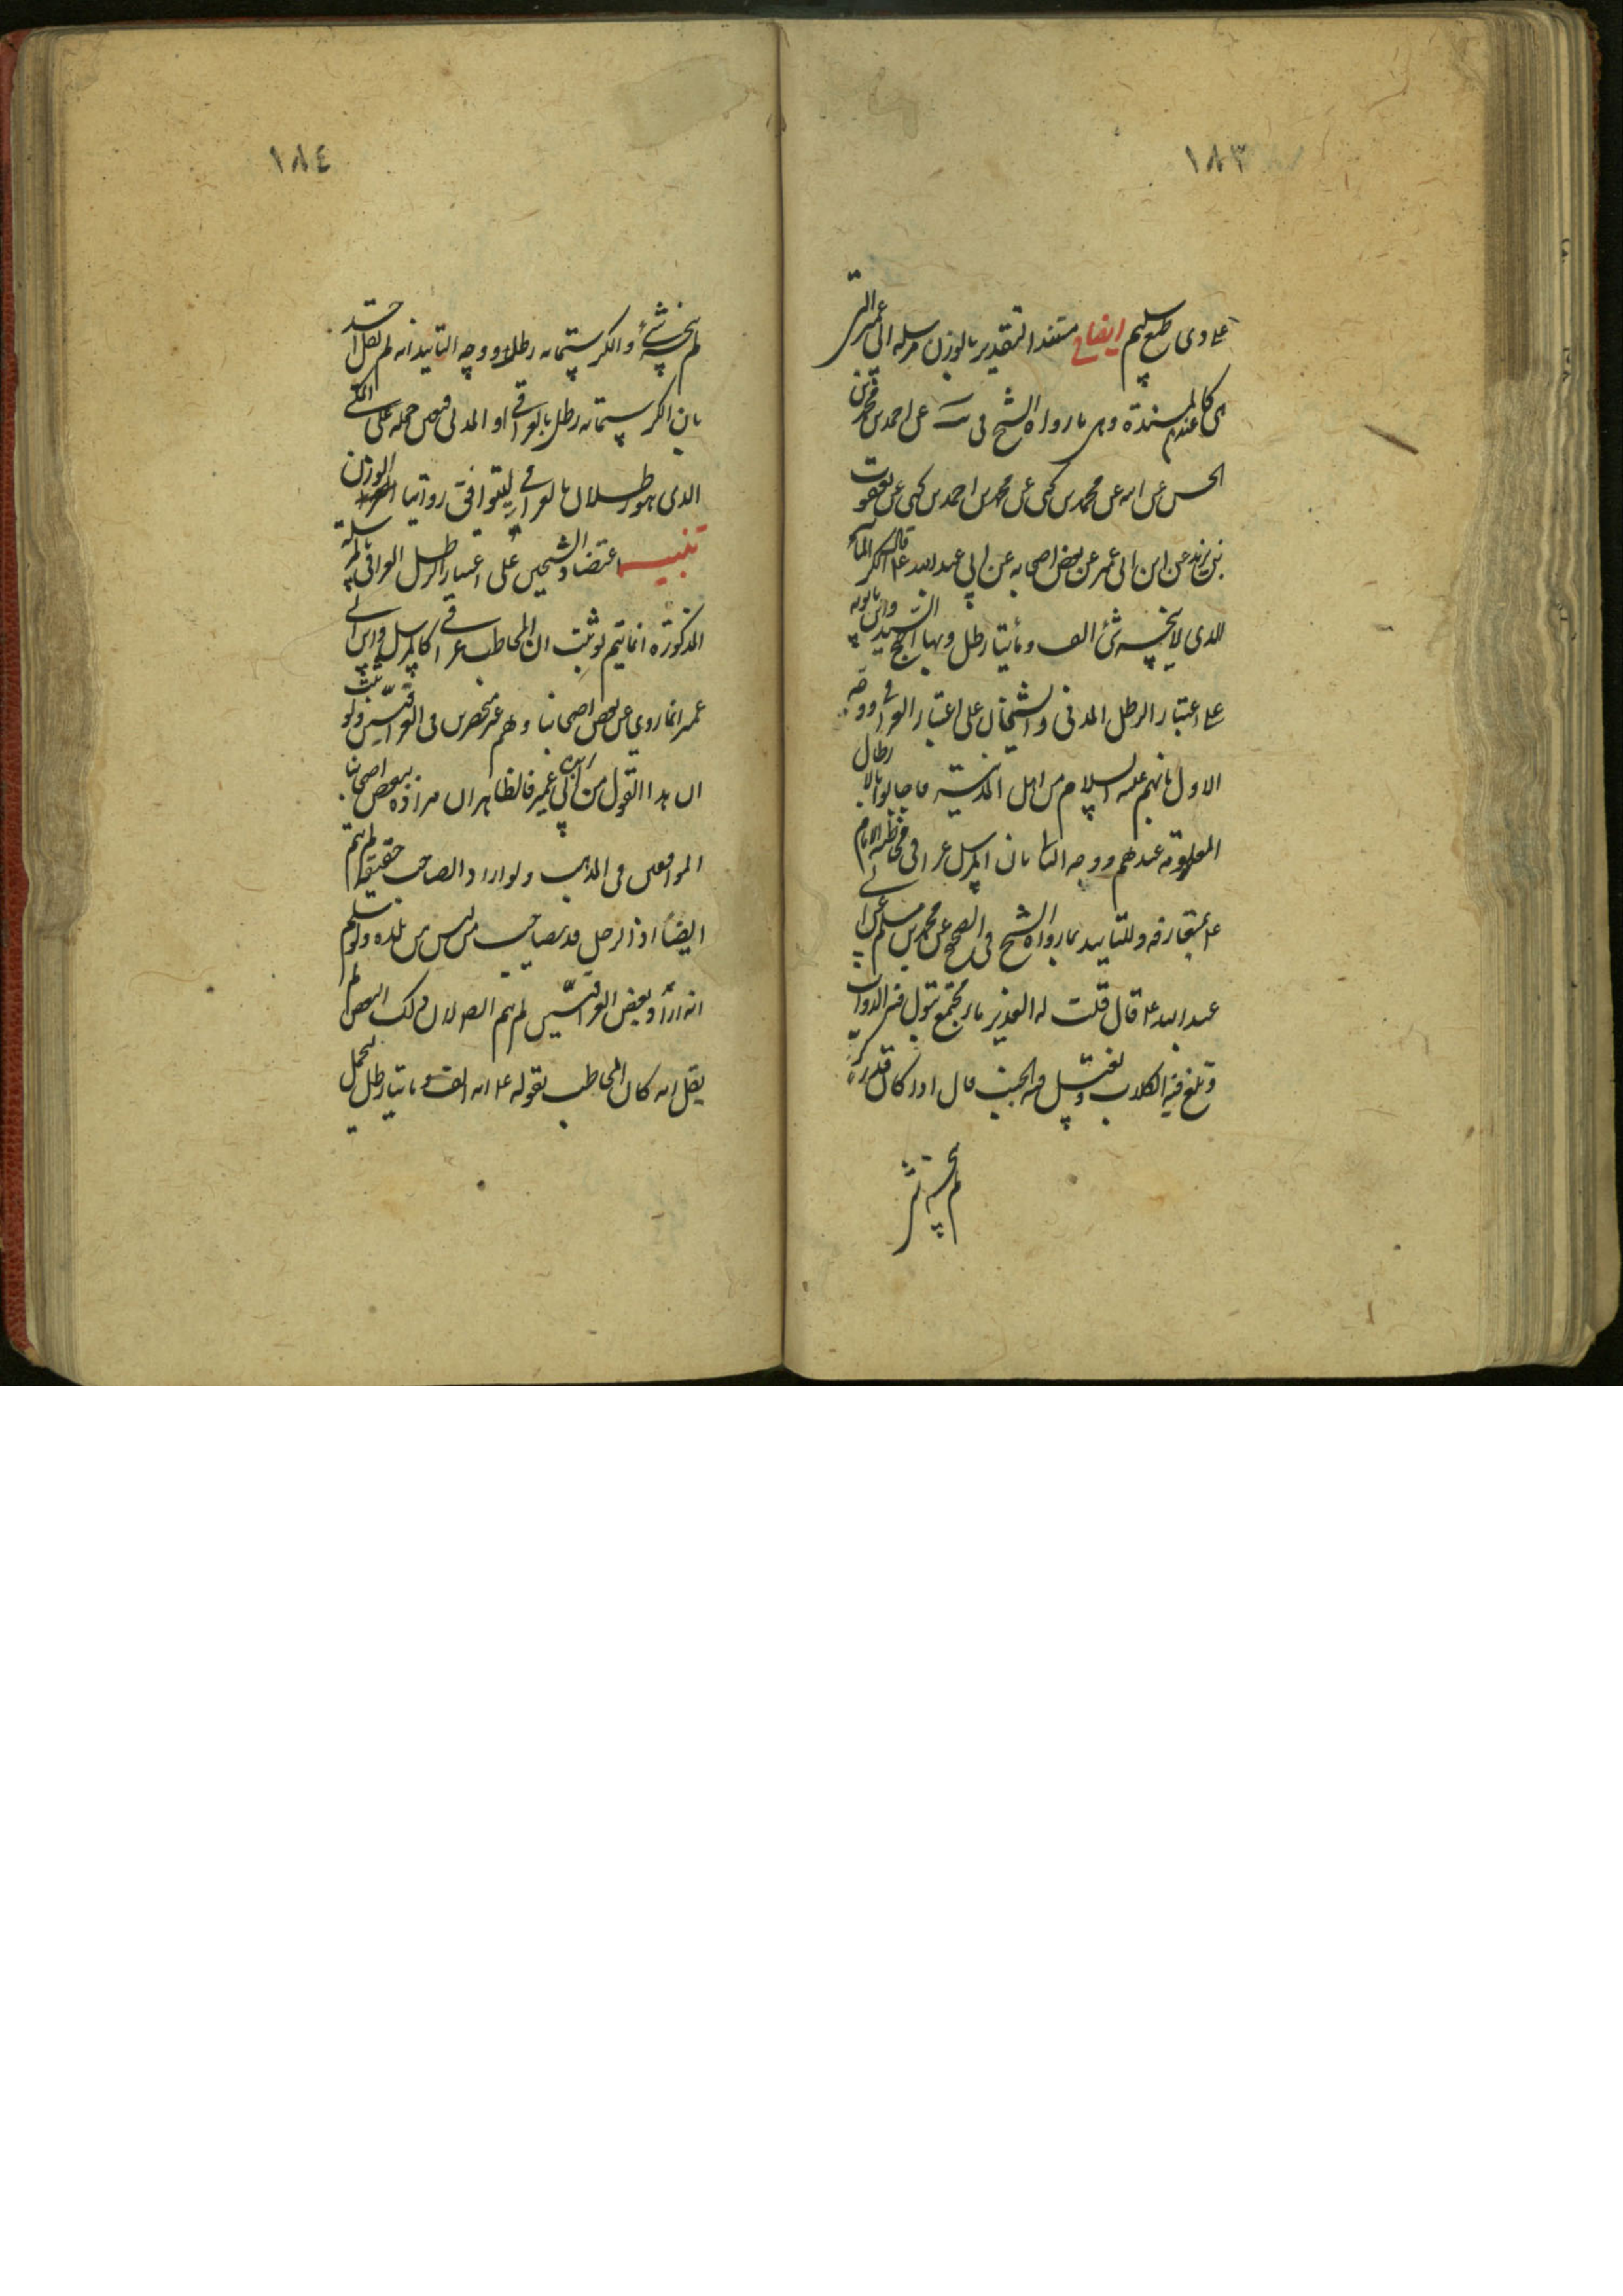 ١٨٣
على ذى طبع سليم ايضاح مستند التقدير بالوزن مرسلة ابن ابى عمير التى
هى كالمسندة عندهم وهى ما رواه الشيخ فى عن احمد بن محمد بن
الحسن عن ابيه عن محمد بن يحيى عن محمد بن احمد بن يحيى عن يعقوب
بن يزيد عن ابن ابى عمير عن بعض اصحابه عن ابي عبد الله ع قال الكر من الماء
الذى لا ينجسه شئ الف ومأيتا رطل وبها احتج السيد وابن بابويه
على اعتبار الرطل المدنى والشيخان على اعتبار العراقى ووجه
الاول بانهم عليهم السلام من اهل المدينة فاجابوا بالارطال
المعلومة عندهم ووجه الثانى بان المرسل عراقى فخاطبه الامام
ع بمتعارفه وللتاييد بما رواه الشيخ فى الصحيح عن محمد بن مسلم عن ابى
عبد الله ع قال قلت له الغدير ماء مجتمع تبول فيه الدواب
وتلغ فيه الكلاب ويغتسل فيه الجنب قال اذا كان قدر كر
لم ينجسه شئ
١٨٤
لم ينجسه شئ والكر ستمائه رطل ووجه التاييد انه لم يقل احد
بان الكر ستمائه رطل بالعراقى او المدنى فيتعين حمله على المكى
الذى هو رطلان بالعراقى ليتوافق روايتا الوزن
تنبيه اعتضاد الشيخين على اعتبار الرطل العراقى بالمرسلة
المذكورة انما يتم لو ثبت ان المخاطب عراقى كالمرسل وابن ابى
عمير انما روى عن بعض اصحابنا وهم غير منحصرين فى العراقيين ولو ثبت
ان هذا القول من ابن ابى عمير فالظاهر ان مراده ببعض اصحابنا
الموافقين فى المذهب ولو اراد الصاحب حقيقة لم يتم
ايضا اذ الرجل قد يصاحب من ليس من بلده ولو سلم
انه اراد بعض العراقيين لم يتم الاستدلال لان ذلك البعض لم
يقل انه كان المخاطب بقوله ع انه الف ومايتا رطل ليحمل